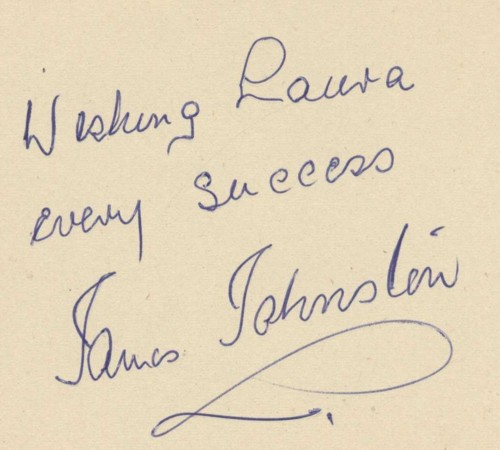 Wishing Laura
every success
James Johnston